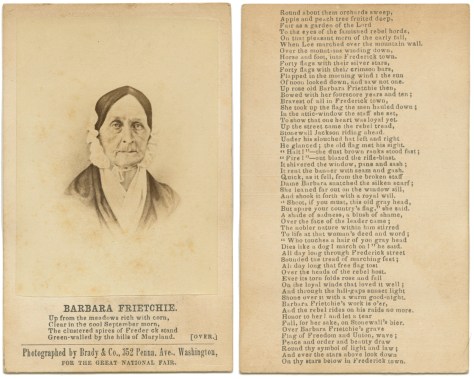 BARBARA FRIETCHIE.
Up from the meadows rich with corn,
Clear in the cool September morn,
The clustered spires of Freder ck stand
Green-walled by the hills of Maryland. [OVER.]
Photographed by Brady & Co., 352 Penna. Ave., Washington,
FOR THE GREAT NATIONAL FAIR.
Round about them orchards sweep,
Apple and peach tree fruited deep,
Fair as a garden of the Lord
To the eyes of the famished rebel horde,
On that pleasant morn of the early fall,
When Lee marched over the mountain wall.
Over the mountains winding down,
Horse and foot, into Frederick town.
Forty flags with their silver stars,
Forty flags with their crimson bars,
Flapped in the morning wind; the sun
Of noon looked down, and saw not one.
Up rose old Barbara Frietchie then,
Bowed with her fourscore years and ten;
Bravest of all in Frederick town,
She took up the flag the men hauled down;
In the attic-window the staff she set,
To show that one heart was loyal yet.
Up the street came the rebel tread,
Stonewall Jackson riding ahead.
Under his slouched hat left and right
He glanced; the old flag met his sight.
"Halt!"—the dust brown ranks stood fast;
"Fire!"—out blazed the rifle-blast.
It shivered the window, pane and sash;
It rent the banner with seam and gash.
Quick, as it fell, from the broken staff
Dame Barbara snatched the silken scarf;
She leaned far out on the window sill,
And shook it forth with a royal will.
"Shoot, if you must, this old gray head,
But spare your country's flag," she said.
A shade of sadness, a blush of shame,
Over the face of the leader came;
The nobler nature within him stirred
To life at that woman's deed and word;
"Who touches a hair of yon gray head
Dies like a dog! march on!" he said.
All day long through Frederick street
Sounded the tread of marching feet;
All day long that free flag tost
Over the heads of the rebel host.
Ever its torn folds rose and fell
On the loyal winds that loved it well;
And through the hill-gaps sunset light
Shone over it with a warm good-night.
Barbara Frietchie's work is o'er,
And the rebel rides on his raids no more.
Honor to her! and let a tear
Fall, for her sake, on Stonewall's bier.
Over Barbara Frietchie's grave
Flag of Freedom and Union, wave;
Peace and order and beauty draw
Round thy symbol of light and law;
And ever the stars above look down
On thy stars below in Frederick town.